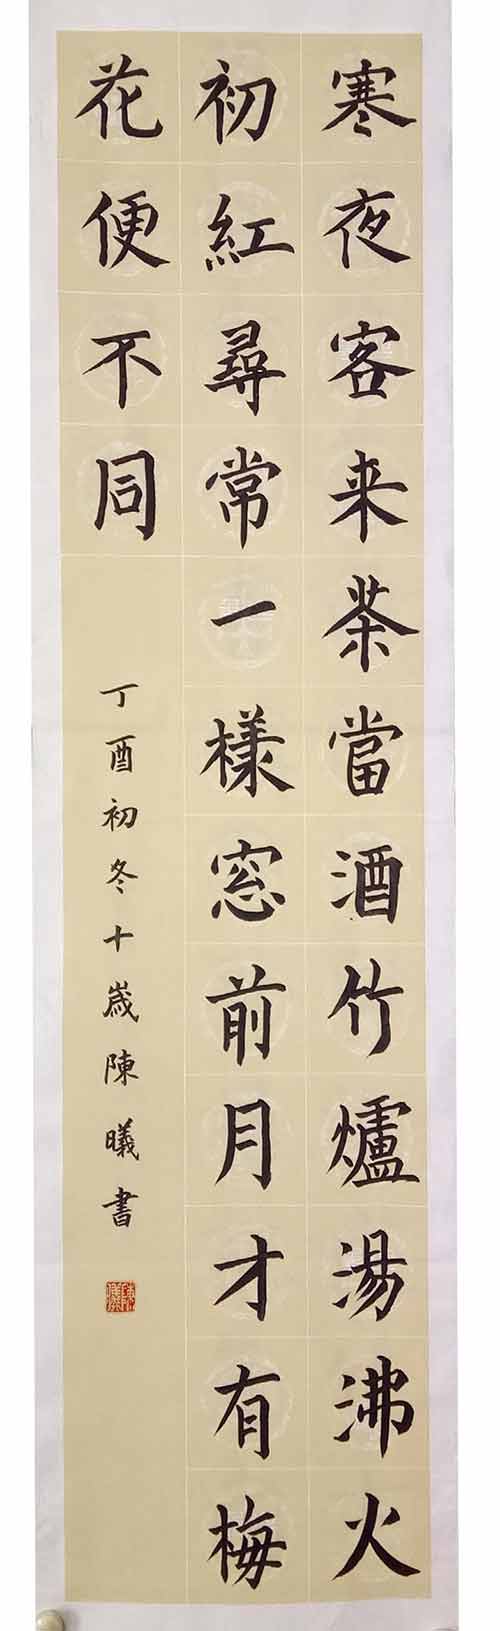 寒夜客来茶當酒竹爐湯沸火
初紅尋常一樣窓前月才有梅
花便不同
丁酉初冬十歲陳曦書